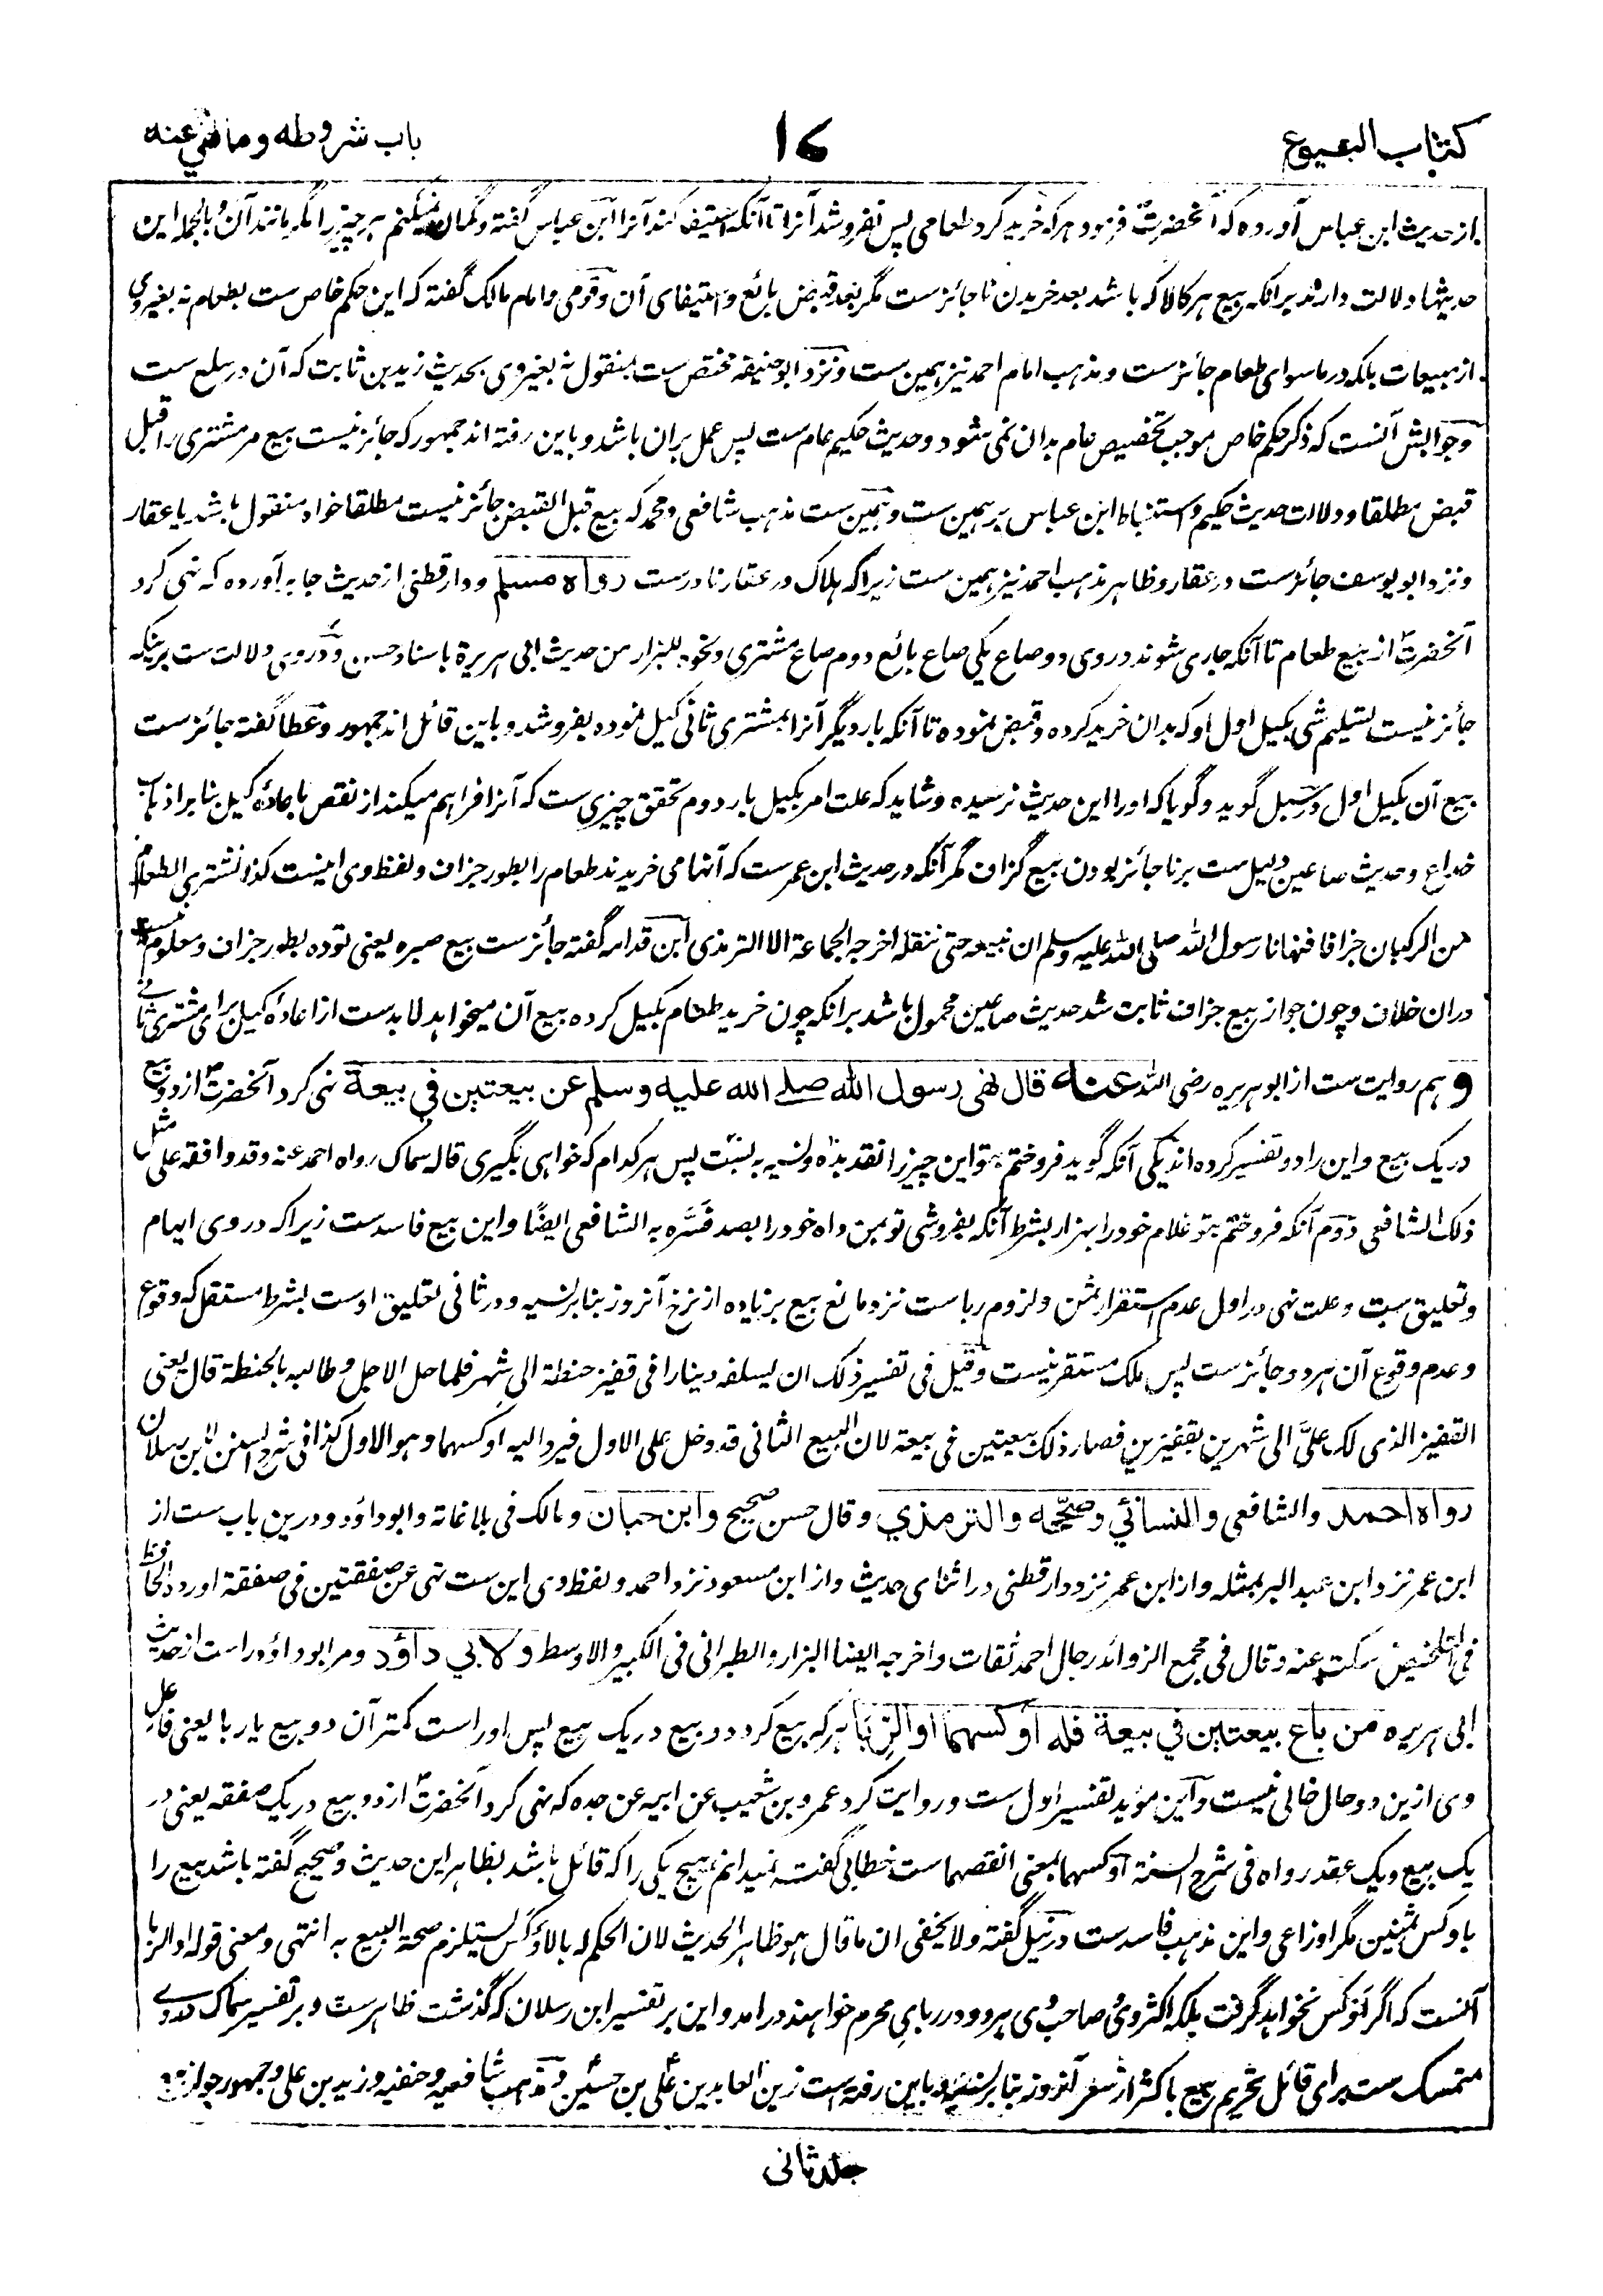 کتاب البیوع
۱۷
باب شروطه وما نهي عنه
از حدیث ابن عباس آورده که آنحضرتؐ فرمود هر که خرید کرد طعامی پس نفروشد آنرا تا آنکه استیفا کند آنرا ابن عباس گفته و گمان نمیکنم هر چیز را مگر مانند آن و بالجمله این
حدیثها دلالت دارند برانکه بیع هر کالا که باشد بعد خریدن ناجائزست مگر بعد قبض بائع و استیفای آن و قومی و امام مالک گفته که این حکم خاص ست بطعام نه بغیر وی
از مبیعات بلکه در ماسوای طعام جائزست و مذهب امام احمد نیز همین ست و نزد ابوحنیفه مختص ست بمنقول نه بغیر وی بحدیث زید بن ثابت که آن در سلع ست
وجوابش آنست که ذکر حکم خاص موجب تخصیص عام بدان نمی شود و حدیث حکیم عام ست پس عمل بران باشد و باین رفته اند جمهور که جائز نیست بیع مر مشتری را قبل
قبض مطلقا و دلالت حدیث حکیم و استنباط ابن عباس بر همین ست و همین ست مذهب شافعی و محمد که بیع قبل القبض جائز نیست مطلقا خواه منقول باشد یا عقار
و نزد ابو یوسف جائزست در عقار و ظاهر مذهب احمد نیز همین ست زیرا که هلاک در عقار نادرست رواه مسلم و دارقطنی از حدیث جابر آورده که نهی کرد
آنحضرتؐ از بیع طعام تا آنکه جاری شوند در وی دو صاع یکی صاع بائع دوم صاع مشتری و نحوه للبزار من حدیث ابی هریرة باسناد حسن و در وی دلالت ست برینکه
جائز نیست تسلیم شی بکیل اول او که بدان خرید کرده و قبض نموده تا آنکه بار دیگر آنرا بمشتری ثانی کیل نموده بفروشد و باین قائل اند جمهور و عطا گفته جائزست
بیع آن بکیل اول در سبل گوید و گویا که اورا این حدیث نرسیده و شاید که علت امر بکیل بار دوم تحقق چیزی ست که آنرا فراهم میکند از نقص با عاده کیل بنا بر اذهاب
خداع و حدیث صاعین دلیل ست بر ناجائز بودن بیع گزاف مگر آنکه در حدیث ابن عمرست که آنها می خریدند طعام را بطور جزاف و لفظ وی اینست کنا نشتری الطعام
من الرکبان جزافا فنهانا رسول الله صلی الله علیه وسلم ان نبیعه حتی ننقله اخرجه الجماعة الا الترمذی ابن قدامه گفته جائزست بیع صبره یعنی توده بطور جزاف و معلوم نیست
دران خلاف و چون جواز بیع جزاف ثابت شد حدیث صاعین محمول باشد برانکه چون خرید طعام بکیل کرده بیع آن میخواهد لابدست از اعادهٔ کیل برای مشتری ثانی
و هم روایت ست از ابو هریره رضی الله عنه قال نهی رسول الله صلے الله علیه وسلم عن بیعتین في بیعة نهی کرد آنحضرتؐ از دو بیع
در یک بیع و این را دو تفسیر کرده اند یکی آنکه گوید فروختم بتو این چیز را نقد بده و نسیه به بست پس هر کدام که خواهی بگیری قاله سماک رواه احمد عنه وقد وافقه علی مثل
ذلک الشافعی دوم آنکه فروختم بتو غلام خود را بهزار بشرط آنکه بفروشی تو بمن واه خود را بصد فسّره به الشافعی ایضًا و این بیع فاسدست زیرا که در وی ابهام
و تعلیق ست و علت نهی در اول عدم استقرار ثمن و لزوم رباست نزد مانع بیع بزیاده از نرخ آنروز بنابر نسیه و در ثانی تعلیق اوست بشرط مستقل که وقوع
و عدم وقوع آن هر دو جائزست پس ملک مستقر نیست و قیل فی تفسیر ذلک ان یسلفه دینارا فی قفیز حنطة الی شهر فلما حل الاجل و طالبه بالحنطة قال بعنی
القفیز الذی لک علیَّ الی شهرین بقفیزین فصار ذلک بیعتین فی بیعة لان البیع الثانی قد دخل علی الاول فیرد الیه اوکسهما وهو الاول کذا فی شرح السنن لابن رسلان
رواه احمد والشافعی والنسائي وصحّحه والترمذي وقال حسن صحیح وابن حبان و مالک فی بلاغاته و ابوداؤد و درین باب ست از
ابن عمر نزد ابن عبدالبر بمثله و از ابن عمر نزد دارقطنی در اثنای حدیث و از ابن مسعود نزد احمد و لفظ وی این ست نهی عن صفقتین فی صفقة اورده الحافظ
فی التلخیص و سکت عنه وقال فی مجمع الزوائد رجال احمد ثقات واخرجه ایضا البزار والطبرانی فی الکبیر والاوسط ولابي داؤد و مر ابوداؤد راست از حدیث
ابی هریره من باع بیعتین في بیعة فله اوکسهما او الرِّبا هر که بیع کرد دو بیع در یک بیع پس اوراست کمتر آن دو بیع یا ربا یعنی فاعل
وی ازین دو حال خالی نیست و این مؤید تفسیر اول ست و روایت کرد عمرو بن شعیب عن ابیه عن جده که نهی کرد آنحضرتؐ از دو بیع در یک صفقه یعنی در
یک بیع و یک عقد رواه فی شرح السنة اوکسهما بمعنی انقصهما ست خطابی گفته نمیدانم هیچ یکی را که قائل باشد بظاهر این حدیث و صحیح گفته باشد بیع را
باوکس ثمنین مگر اوزاعی و این مذهب فاسدست در نیل گفته ولا یخفی ان ما قال هو ظاهر الحدیث لان الحکم له بالاوکس یستلزم صحة البیع به انتهی و معنی قوله او الربا
آنست که اگر اوکس نخواهد گرفت بلکه اکثر وی و صاحب وی هر دو در ربای محرم خواهند درامد و این بر تفسیر ابن رسلان که گذشت ظاهرست و بر تفسیر سماک دروے
متمسک ست برای قائل تحریم بیع باکثر از سعر آنروز بنابر نسیه و باین رفته است زین العابدین علی بن حسین و مذهب شافعیه و حنفیه و زید بن علی و جمهور جواز
جلد ثانی